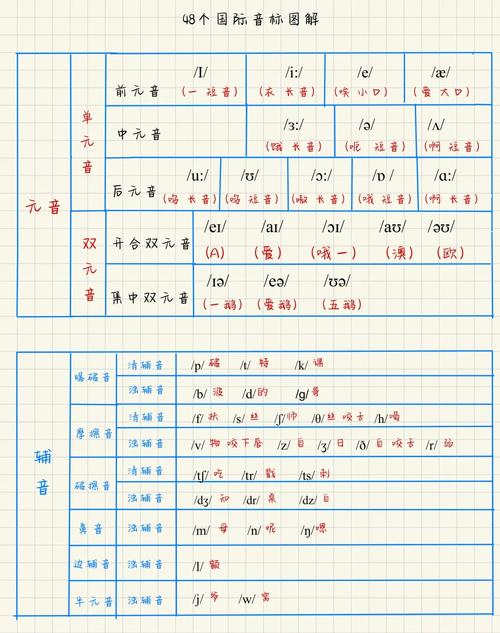 48个国际音标图解
元音
单元音
前元音 /I/ /i:/ /e/ /æ/
(一 短音) (衣 长音) (唉 小口) (爱 大口)
中元音 /ɜ:/ /ə/ /ʌ/
(饿 长音) (呃 短音) (啊 短音)
后元音 /u:/ /ʊ/ /ɔ:/ /ɒ/ /ɑ:/
(呜 长音) (呜 短音) (嗷 长音) (哦 短音) (啊 长音)
双元音
开合双元音 /eɪ/ /aɪ/ /ɔɪ/ /aʊ/ /əʊ/
(A) (爱) (哦一) (澳) (欧)
集中双元音 /ɪə/ /eə/ /ʊə/
(一鹅) (爱鹅) (五鹅)
辅音
爆破音
清辅音 /p/ 破 /t/ 特 /k/ 课
浊辅音 /b/ 波 /d/的 /g/哥
摩擦音
清辅音 /f/扶 /s/丝 /ʃ/帅 /θ/丝 咬舌 /h/喝
浊辅音 /v/ 物 咬下唇 /z/ 自 /ʒ/ 日 /ð/ 自 咬舌 /r/
破擦音
清辅音 /tʃ/吃 /tr/ 戳 /ts/刺
浊辅音 /dʒ/ 知 /dr/ 桌 /dz/自
鼻音 浊辅音 /m/ 母 /n/ 呢 /ŋ/嗯
边辅音 浊辅音 /l/ 额
半元音 浊辅音 /j/ 爷 /w/ 窝